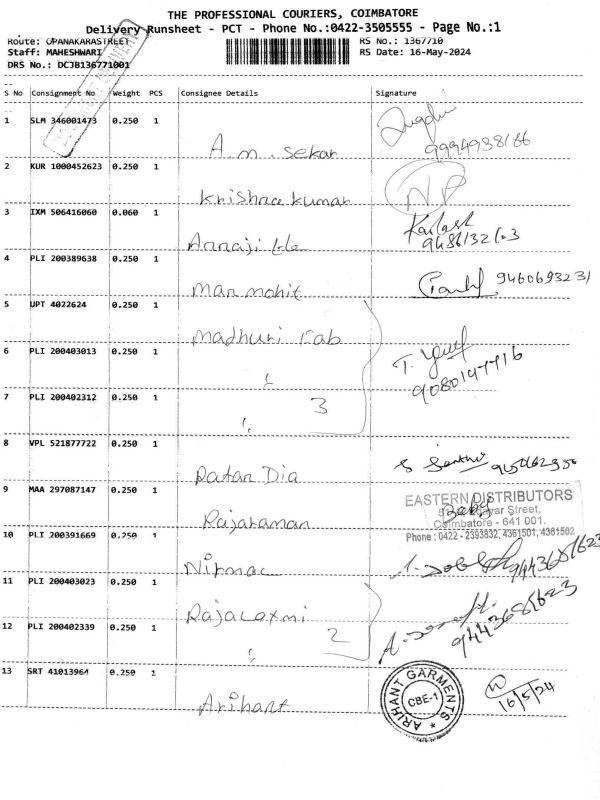 THE PROFESSIONAL COURIERS, COIMBATORE
Delivery Runsheet - PCT - Phone No.:0422-3505555 - Page No.:1
Route: OPANAKARASTREET
RS No.: 1367710
Staff: MAHESHWARI
RS Date: 16-May-2024
DRS No.: DCJB136771001
S No Consignment No Weight PCS Consignee Details Signature
1 SLM 346001473 0.250 1
A.m. sekar 9994938166
2 KUR 1000452623 0.250 1
Krishna kumar
3 IXM 506416060 0.060 1
Annaji Kailash
4 PLI 200389638 0.250 1
Man mohit 9460693231
5 UPT 4022624 0.250 1
Madhuri Fab
6 PLI 200403013 0.250 1
T.
7 PLI 200402312 0.250 1
3
8 VPL 521877722 0.250 1
Ratan Dia S
9 MAA 297087147 0.250 1
EASTERN DISTRIBUTORS
Street,
Coimbatore - 641 001.
Phone : 0422 - 2393832, 4361501, 4381502
Rajaraman
10 PLI 200391669 0.250 1
Nirmal
11 PLI 200403023 0.250 1
Rajalaxmi
12 PLI 200402339 0.250 1
2
13 SRT 41013964 0.250 1
Arihant
ARIHANT GARMENTS
CBE-1
16/5/24